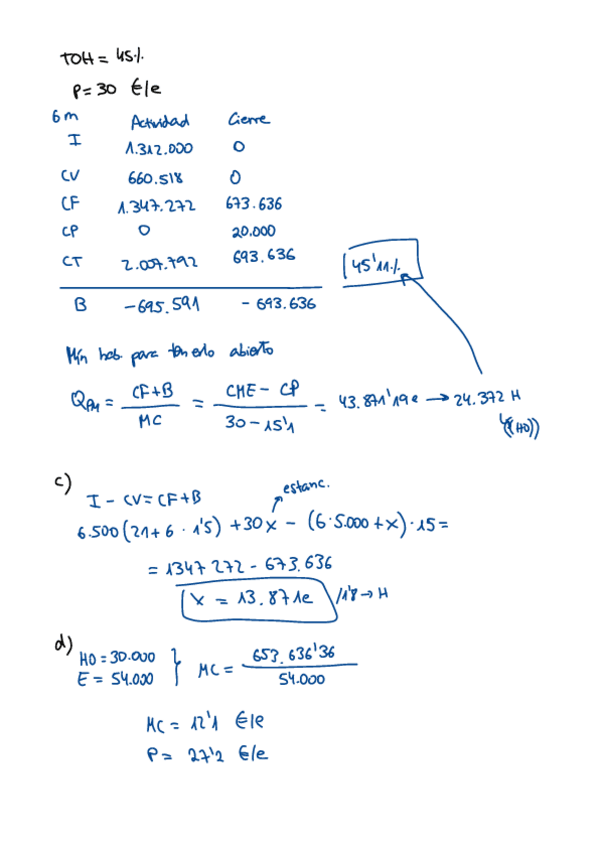 TOH = 45%
P = 30 €/e
6m Actividad Cierre
I 1.312.000 0
CV 660.518 0
CF 1.347.272 673.636
CP 0 20.000
CT 2.007.792 693.636
45'11%
B -695.591 - 693.636
Mín hab. para tenerlo abierto
QPM = CF+B / MC = CME - CP / 30 - 15'1 = 43.871'19 e → 24.372 H
(HO)
c) I - CV = CF + B
estanc.
6.500 (21 + 6 · 1'5) + 30x - (6·5.000 + x) · 15 =
= 1347 272 - 673.636
x = 13.871e /1'8 → H
d) HO = 30.000
E = 54.000 } MC = 653.636'36 / 54.000
MC = 12'1 €/e
P = 27'2 €/e